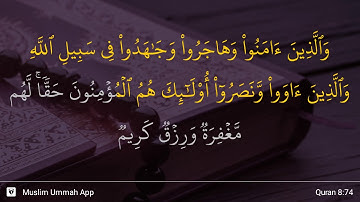 وَٱلَّذِينَ ءَامَنُوا۟ وَهَاجَرُوا۟ وَجَـٰهَدُوا۟ فِى سَبِيلِ ٱللَّهِ
وَٱلَّذِينَ ءَاوَوا۟ وَّنَصَرُوٓا۟ أُو۟لَـٰٓئِكَ هُمُ ٱلْمُؤْمِنُونَ حَقًّۭا ۚ لَّهُم
مَّغْفِرَةٌۭ وَرِزْقٌۭ كَرِيمٌۭ
Muslim Ummah App
Quran 8:74